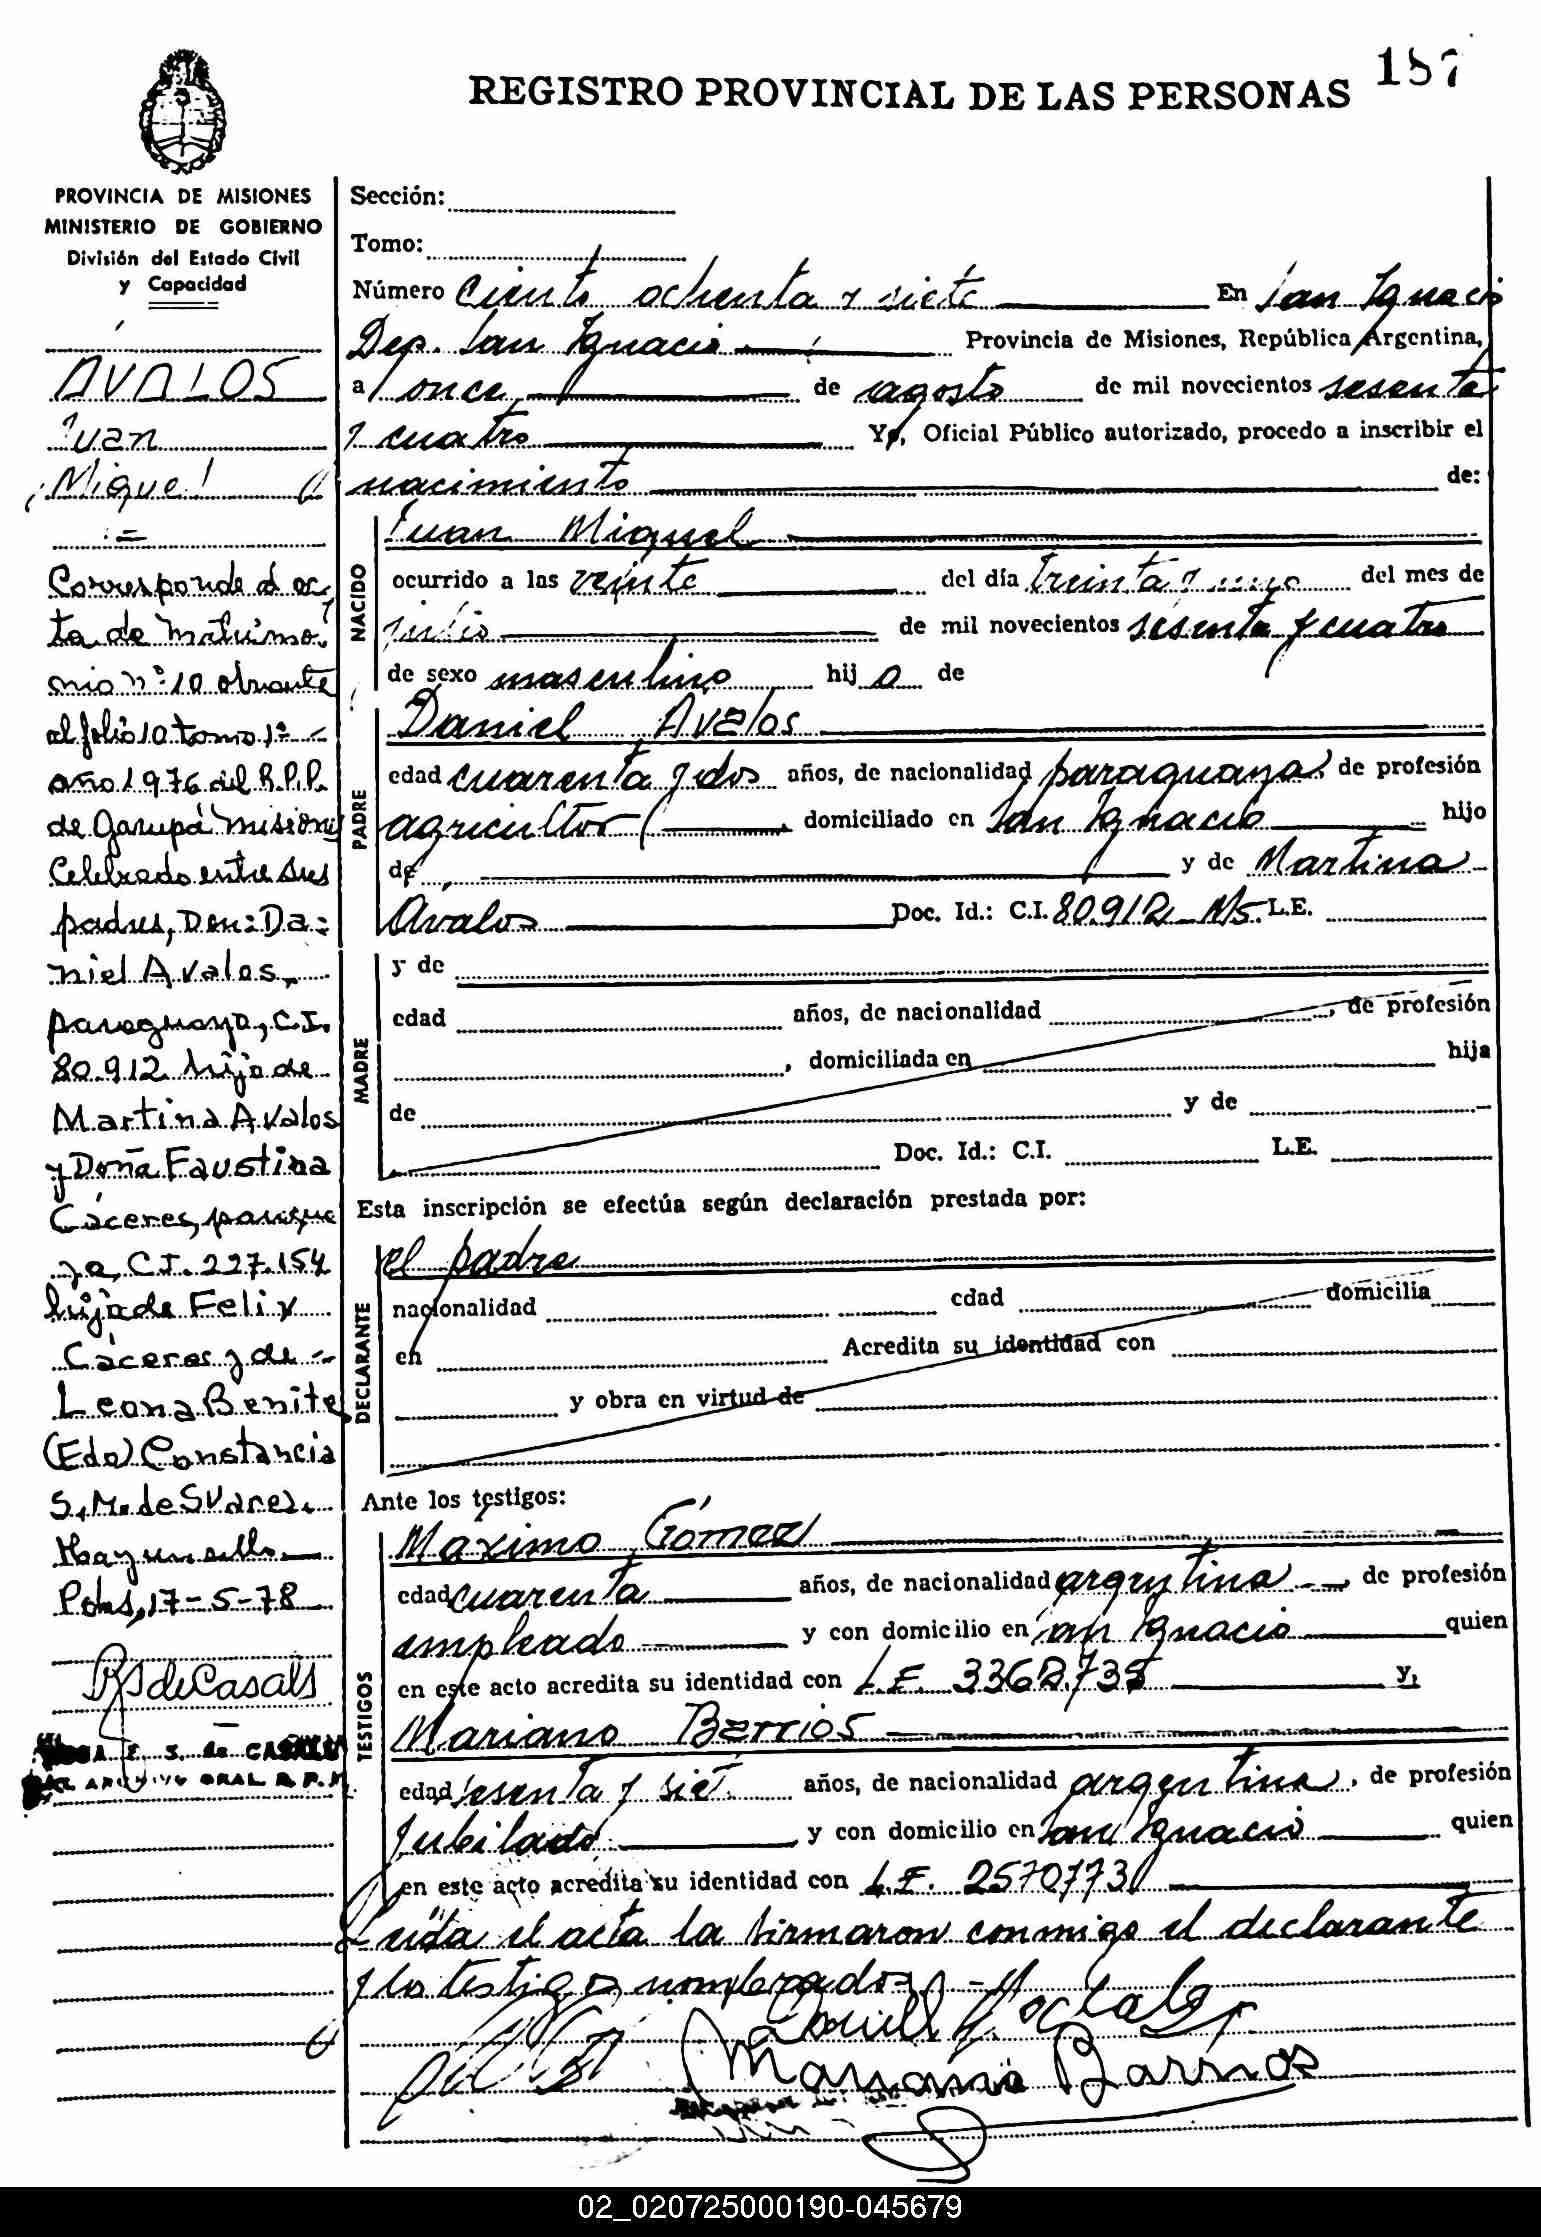 187
REGISTRO PROVINCIAL DE LAS PERSONAS
PROVINCIA DE MISIONES
MINISTERIO DE GOBIERNO
División del Estado Civil
y Capacidad
AVALOS
Juan
Miguel
=
Corresponde al ac-
ta de matrimo-
nio nº 10 obrante
al folio 10 tomo 1º
año 1976 del R.P.P.
de Garupá Misiones
Celebrado entre sus
padres, Don: Da-
niel Avalos,
paraguayo, C.I.
80.912 hijo de
Martina Avalos
y Doña Faustina
Cáceres, paragua
ya, C.I. 227.154
hija de Felix
Cáceres y de
Leona Benite
(Fdo) Constancia
S. M. de Suarez.
Hay un sello.
Pdas, 17-5-78
RS de Casals
E. S. de CASALS
Sección:
Tomo:
Número Ciento ochenta y siete En San Ignacio
Dep. San Ignacio Provincia de Misiones, República Argentina,
a once de agosto de mil novecientos sesenta
y cuatro Yo, Oficial Público autorizado, procedo a inscribir el
nacimiento de:
NACIDO
Juan Miguel
ocurrido a las veinte del día treinta y uno del mes de
julio de mil novecientos sesenta y cuatro
de sexo masculino hij o de
PADRE
Daniel Avalos
edad cuarenta y dos años, de nacionalidad paraguaya, de profesión
agricultor domiciliado en San Ignacio hijo
de y de Martina
Avalos Doc. Id.: C.I. 80.912 L.E.
MADRE
y de
edad años, de nacionalidad , de profesión
, domiciliada en hija
de y de
Doc. Id.: C.I. L.E.
Esta inscripción se efectúa según declaración prestada por:
DECLARANTE
el padre
nacionalidad edad domicilia
en Acredita su identidad con
y obra en virtud de
Ante los testigos:
TESTIGOS
Máximo Gómez
edad cuarenta años, de nacionalidad argentina, de profesión
empleado y con domicilio en San Ignacio quien
en este acto acredita su identidad con L.E. y,
Mariano Barrios
edad sesenta y siete años, de nacionalidad argentina, de profesión
Jubilado y con domicilio en San Ignacio quien
en este acto acredita su identidad con L.E. 2570773
Leída el acta la firmaron conmigo el declarante
y los testigos nombrados
Mariano Barrios
02_020725000190-045679